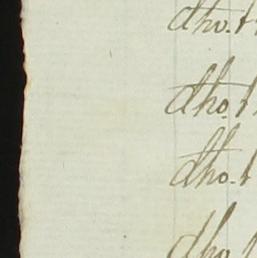 dho.
dho.
dho.
dho.